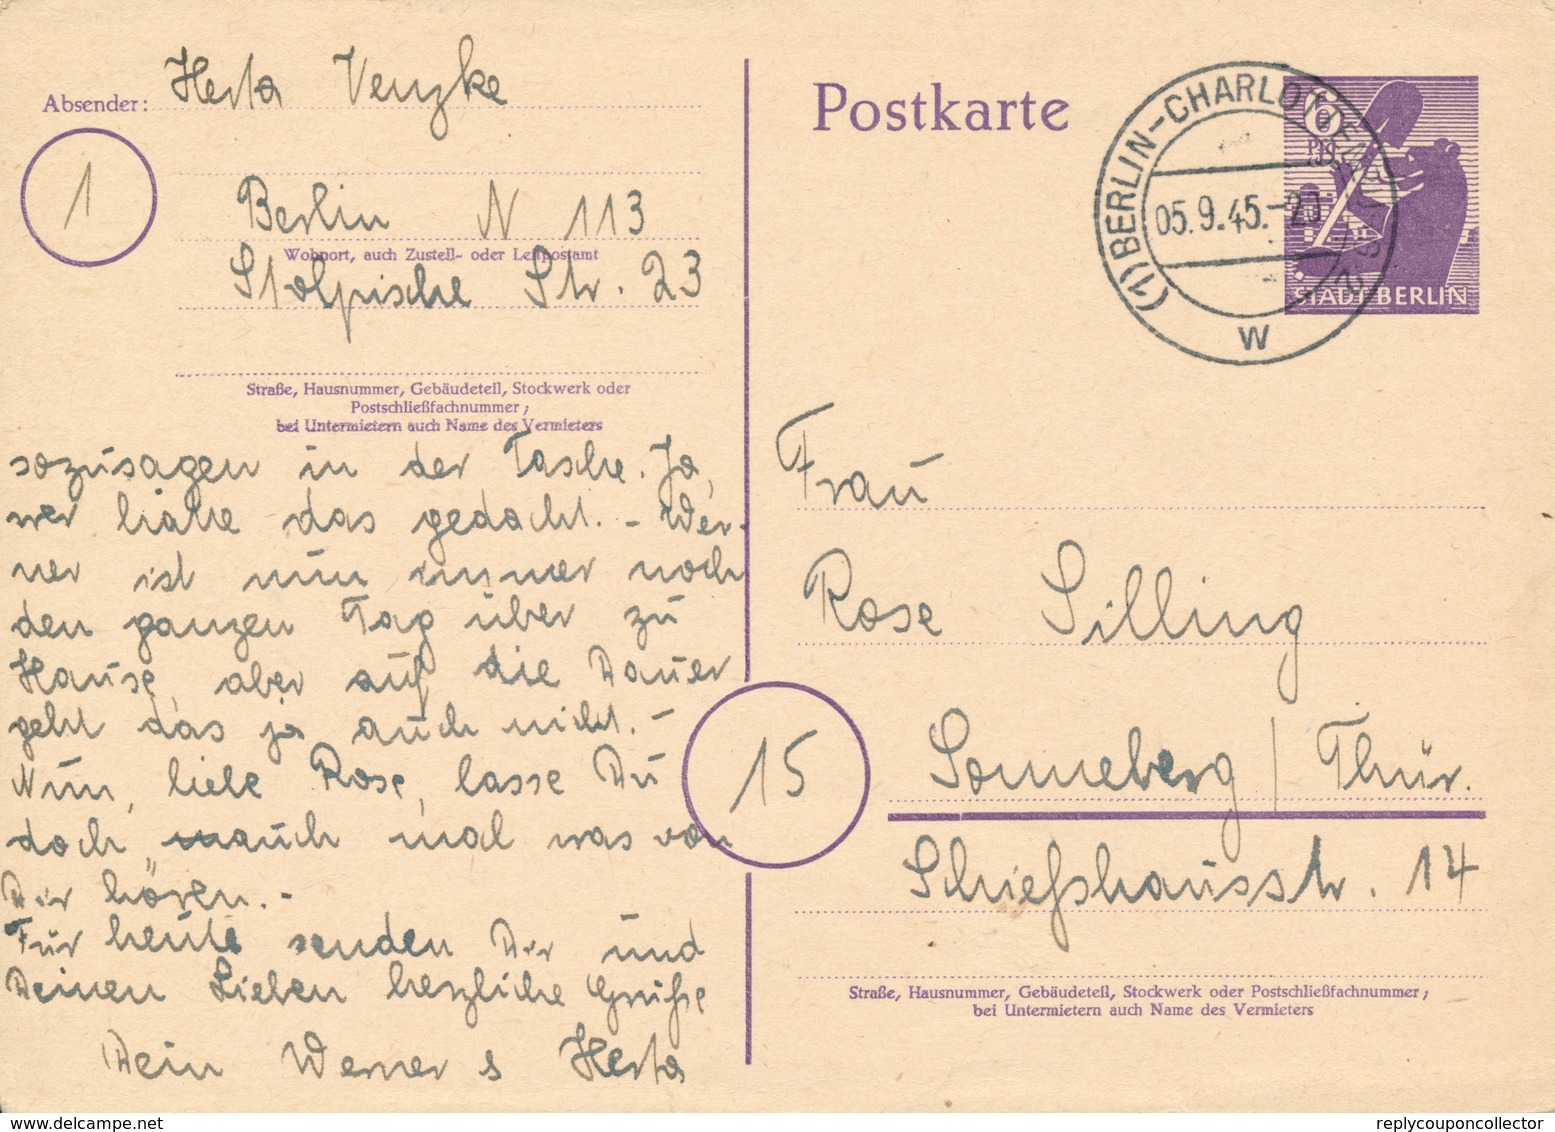 Absender: Herta Venzke
1
Berlin N 113
Wohnort, auch Zustell- oder Leitpostamt
Stolpische Str. 23
Straße, Hausnummer, Gebäudeteil, Stockwerk oder
Postschließfachnummer;
bei Untermietern auch Name des Vermieters
sozusagen in der Tasche. Ja,
wer hätte das gedacht. - Wer-
ner ist nun immer noch
den ganzen Tag über zu
Hause, aber auf die Dauer
geht das ja auch nicht. -
Nun, liebe Rose, lasse Du
doch auch mal was von
Dir hören. -
Für heute senden Dir und
Deinen Lieben herzliche Grüße
Dein Werner & Herta
Postkarte
(1) BERLIN-CHARLOTTENBURG 2
05.9.45.-20
W
6
Pfg
STADT BERLIN
Frau
Rose Silling
15
Sonneberg / Thür.
Schießhausstr. 14
Straße, Hausnummer, Gebäudeteil, Stockwerk oder Postschließfachnummer;
bei Untermietern auch Name des Vermieters
delcampe.net
replycouponcollector